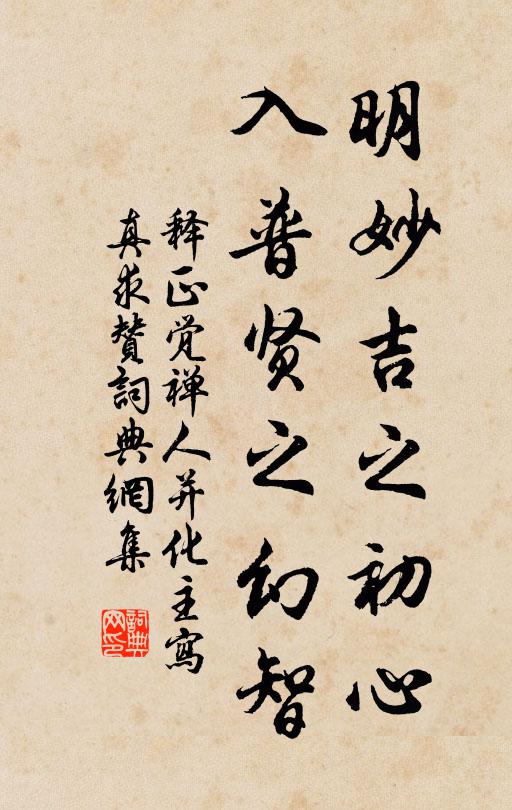 明妙吉之初心
入普贤之幻智
释正觉禅人并化主寫
真求賛詞典網集
詞典网印